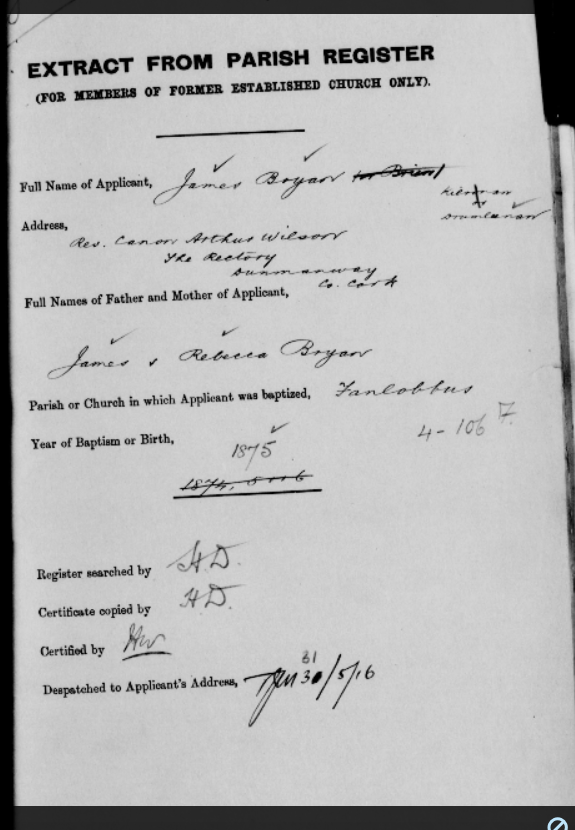 EXTRACT FROM PARISH REGISTER
(FOR MEMBERS OF FORMER ESTABLISHED CHURCH ONLY).
Full Name of Applicant, James Bryan (or Brien)
Address,
Rev. Canon Arthur Wilson
The Rectory
Dunmanway
Co. Cork
Full Names of Father and Mother of Applicant,
James & Rebecca Bryan
Parish or Church in which Applicant was baptized, Fanlobbus
4-106 F.
Year of Baptism or Birth,
1875
1874, 5 or 6
Register searched by H.D.
Certificate copied by H.D.
Certified by
31
Despatched to Applicant's Address, 30/5/16